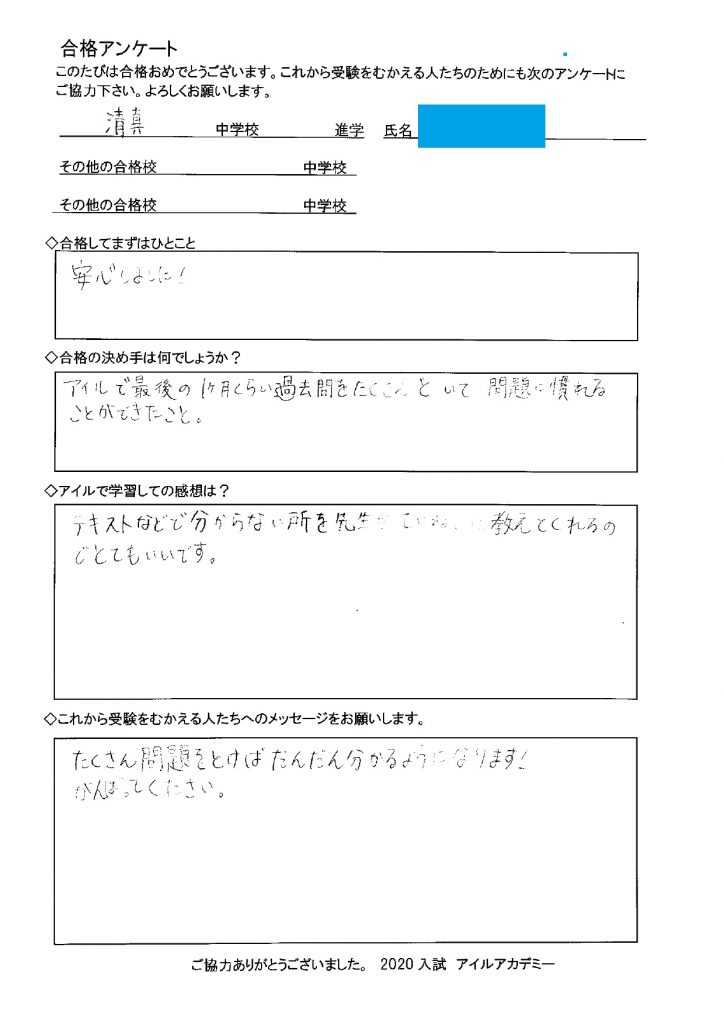 合格アンケート
このたびは合格おめでとうございます。これから受験をむかえる人たちのためにも次のアンケートに
ご協力下さい。よろしくお願いします。
清真 中学校 進学 氏名
その他の合格校 中学校
その他の合格校 中学校
◇合格してまずはひとこと
安心しました!
◇合格の決め手は何でしょうか?
アイルで最後の1ヶ月くらい過去問をたくさんといて 問題に慣れる
ことができたこと。
◇アイルで学習しての感想は?
テキストなどで分からない所を先生が ていねいに教えてくれるの
でとてもいいです。
◇これから受験をむかえる人たちへのメッセージをお願いします。
たくさん問題をとけばだんだん分かるようになります!
がんばってください。
ご協力ありがとうございました。 2020入試 アイルアカデミー